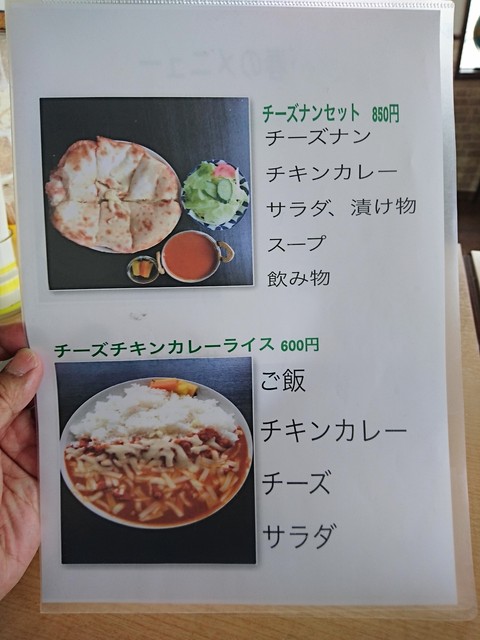 チーズナンセット 850円
チーズナン
チキンカレー
サラダ、漬け物
スープ
飲み物
チーズチキンカレーライス 600円
ご飯
チキンカレー
チーズ
サラダ